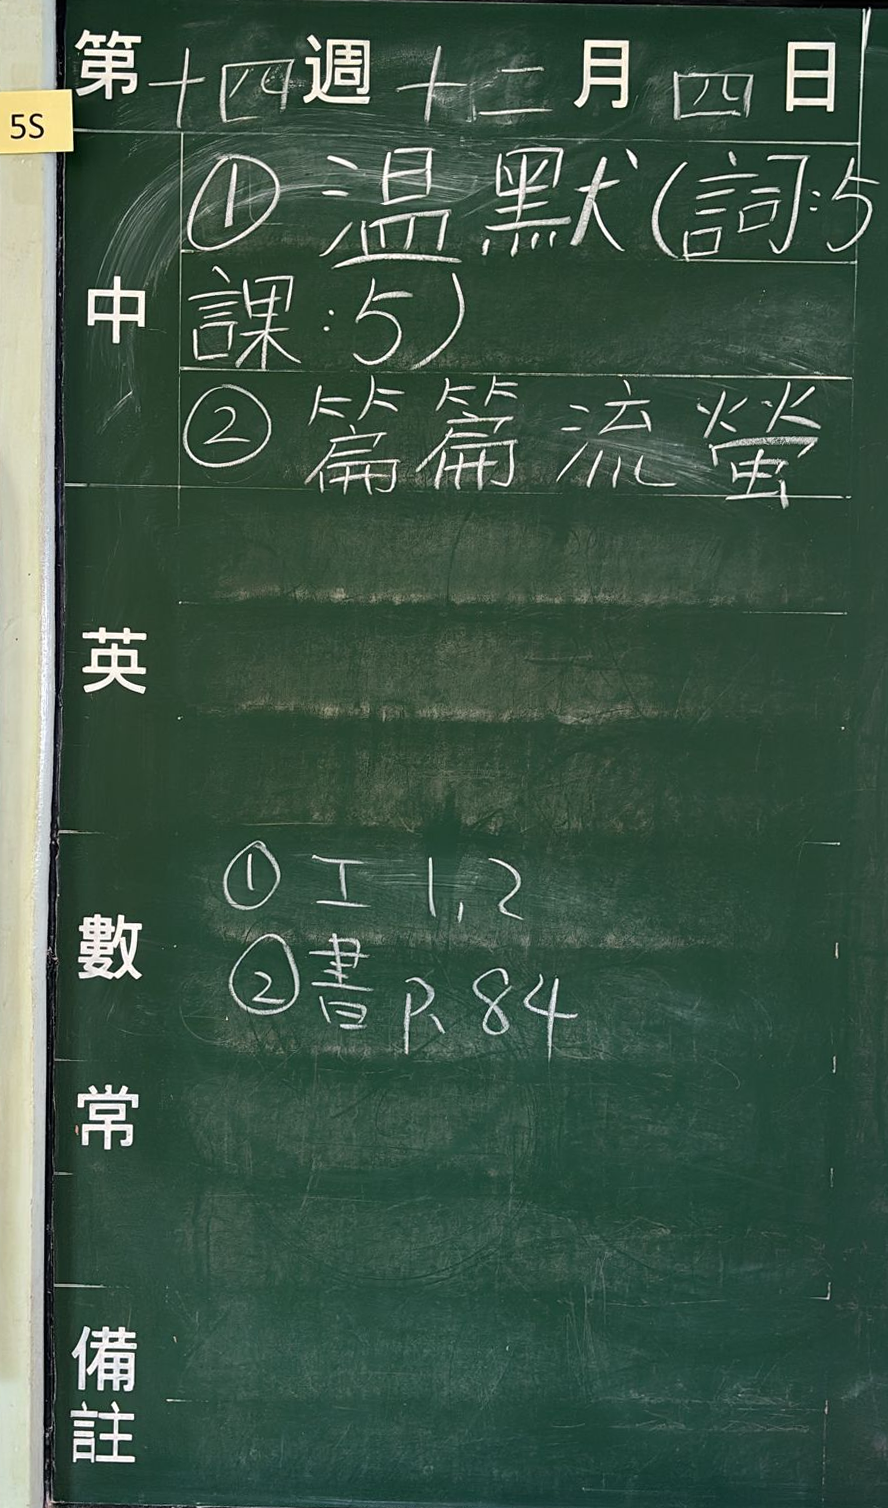 第十四週十二月四日
5S
中
①溫默(詞:5
課:5)
②篇篇流螢
英
數
①工 1,2
②書 P. 84
常
備註